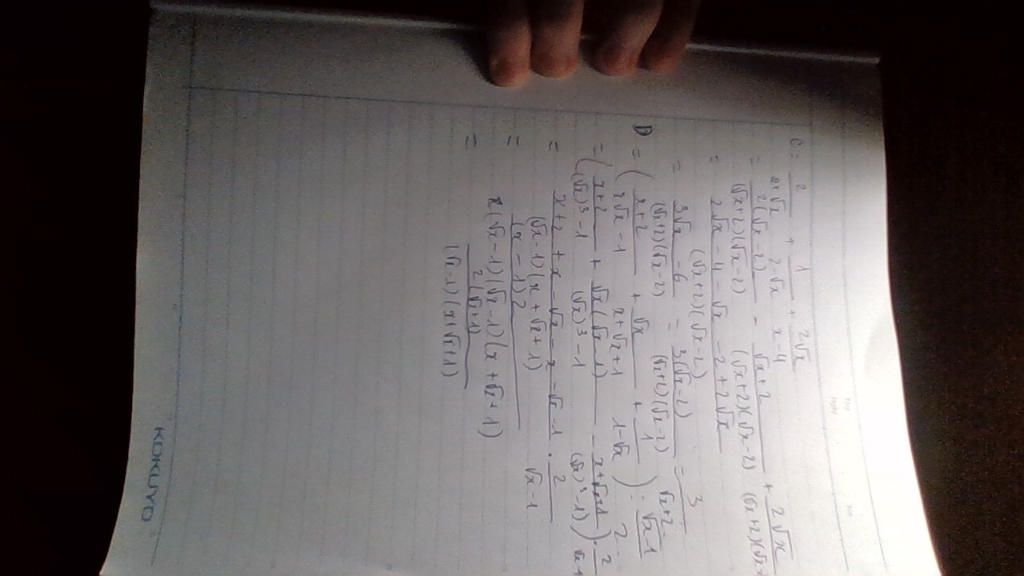 C = 2/(2+√x) + 1/(2-√x) + 2√x/(x-4)
= 2(√x-2)/((√x+2)(√x-2)) - (√x+2)/((√x+2)(√x-2)) + 2√x/((√x+2)(√x
= (2√x-4-√x-2+2√x)/((√x+2)(√x-2))
= (3√x-6)/((√x+2)(√x-2)) = 3(√x-2)/((√x+2)(√x-2)) = 3/(√x+2)
D = ((x+2)/(x√x-1) + √x/(x+√x+1) + 1/(1-√x)) : (√x-1)/2
= ((x+2)/((√x)³-1) + √x(√x-1)/((√x)³-1) - (x+√x+1)/((√x)³-1)) · 2/
= (x+2+x-√x-x-√x-1)/((√x-1)(x+√x+1)) · 2/(√x-1)
=
=
KOKUYO